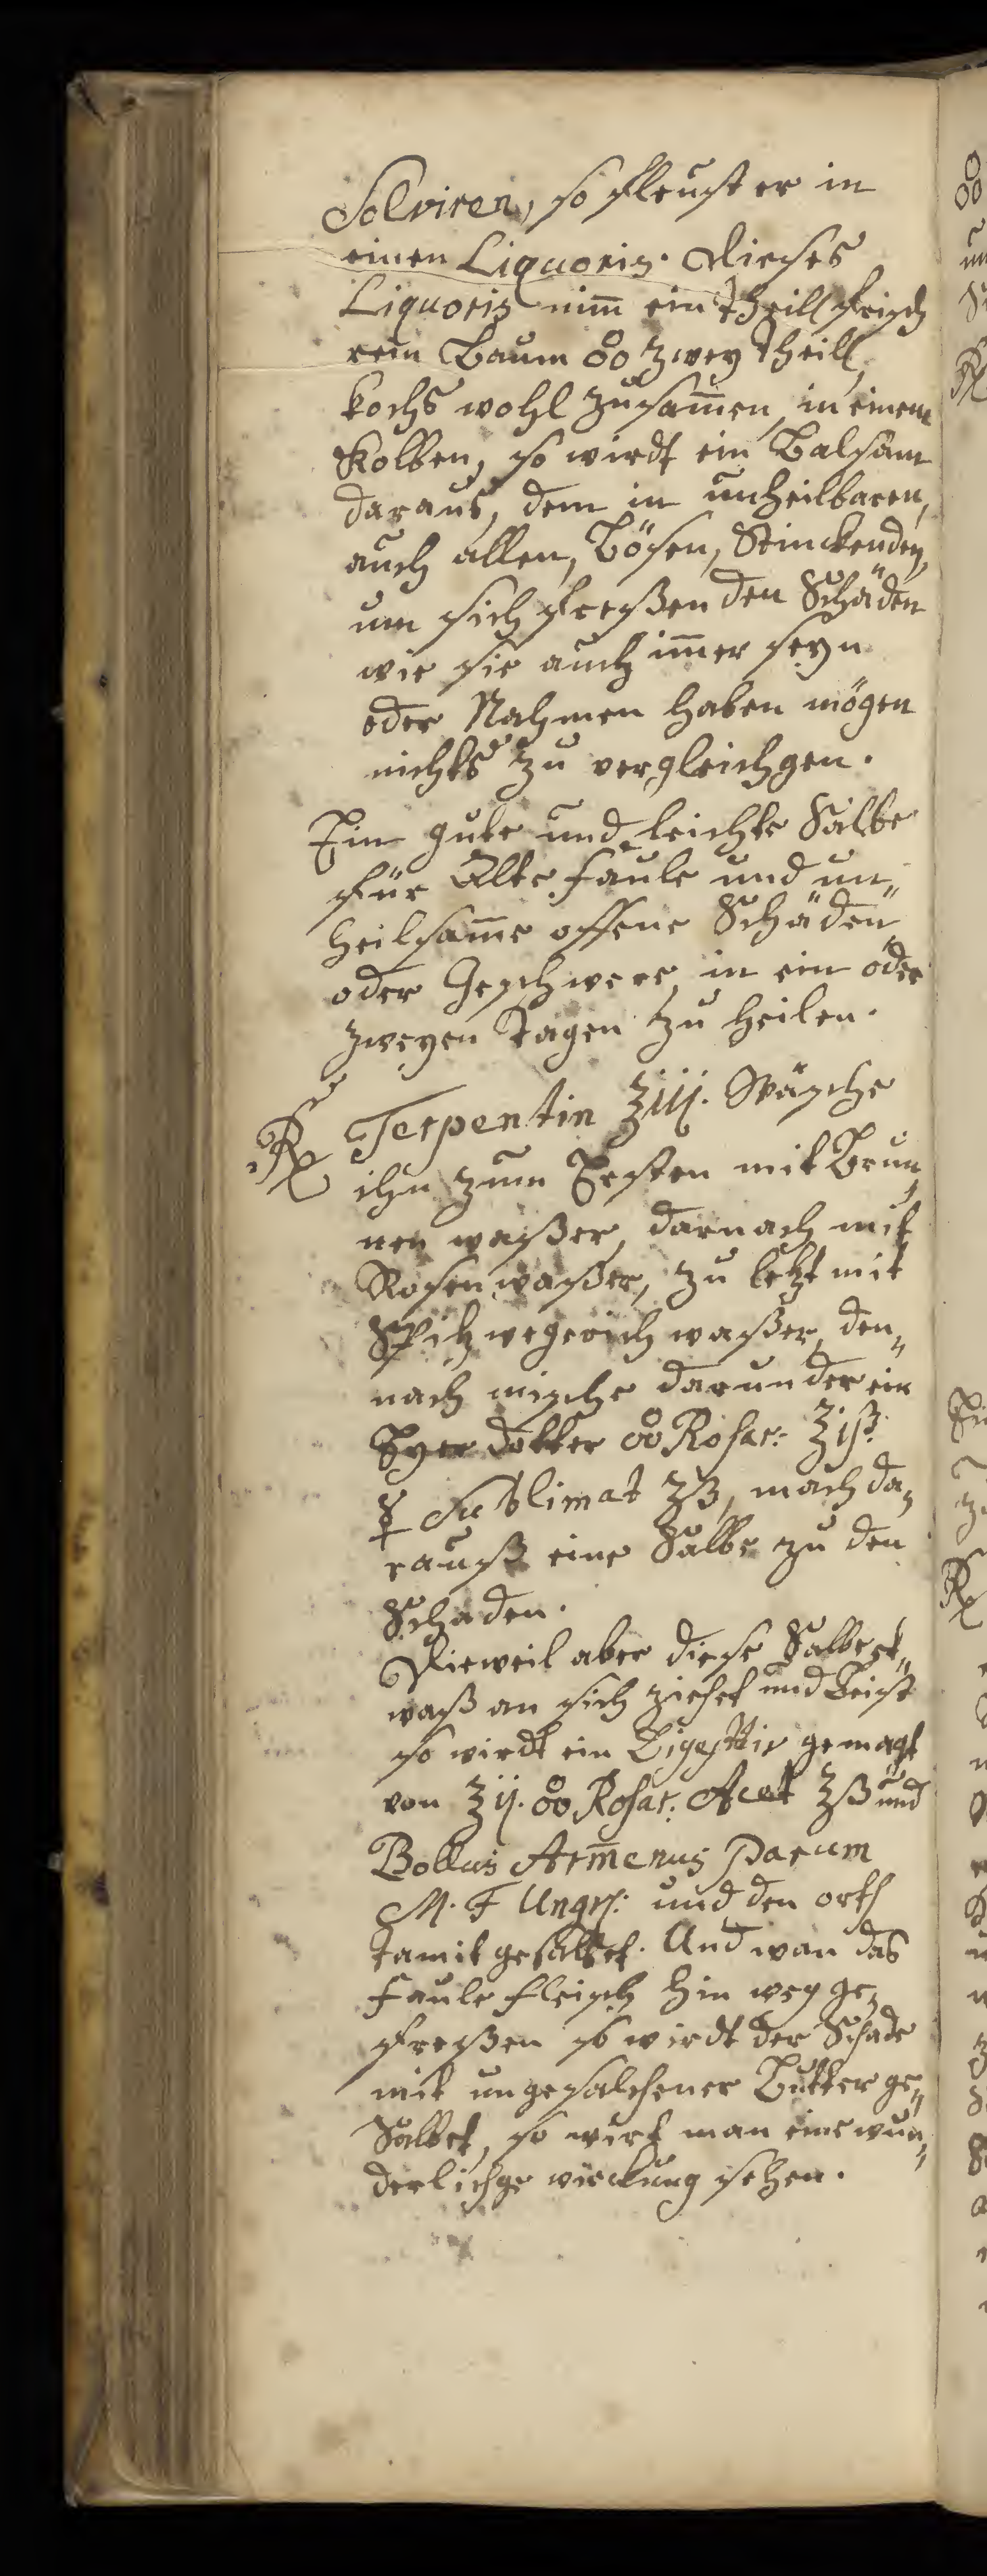 Solviren, so fleust er in
einen Liquoris. Dieses
Liquoris nim̄ ein theill frisch
rein Baum ꝏ zwey theill,
kochs wohl zusam̄en, in einem
Kolben, so wirdt ein Balsam
daraus, dem in unheilbaren,
auch allen, Bösen, Stinckenden,
um sich freßenden Schäden
wie sie auch im̄er seyn
oder Nahmen haben mögen
nichts zu vergleichgen.
Ein gute und leichte Salbe
für Alte faule und un„
heilsam̄e offene Schäden
oder Geschwere, in ein oder
zweyen Tagen zu heilen.
℞ Terpentin ℥iij. Wäsche
ihn zum Ersten mit Brun„
nen waßer, darnach mit
Rosen waßer, zu letzt mit
Spitz wegerich waßer, den„
nach mische darunder ein
Eyer dotter ꝏ Rosar: ℥iß.
☿ Sublimat ʒß, mach da„
rauß eine Salbe zu den
Schaden.
Dieweil aber diese Salbe et„
waß an sich ziehet und Beist
so wirdt ein gemagt
von ℥ij. ꝏ Rosar: Acet ℥ß und
Bollus Arm̄enus Parum
M. F Ung: und den orth
damit gesalbet. Und wan das
faule fleisch hin weg ge„
freßen so wirdt der Schade
mit ungesalzener Butter ge„
Salbet, so wirt man eine wun„
derlichge wirckung sehen.